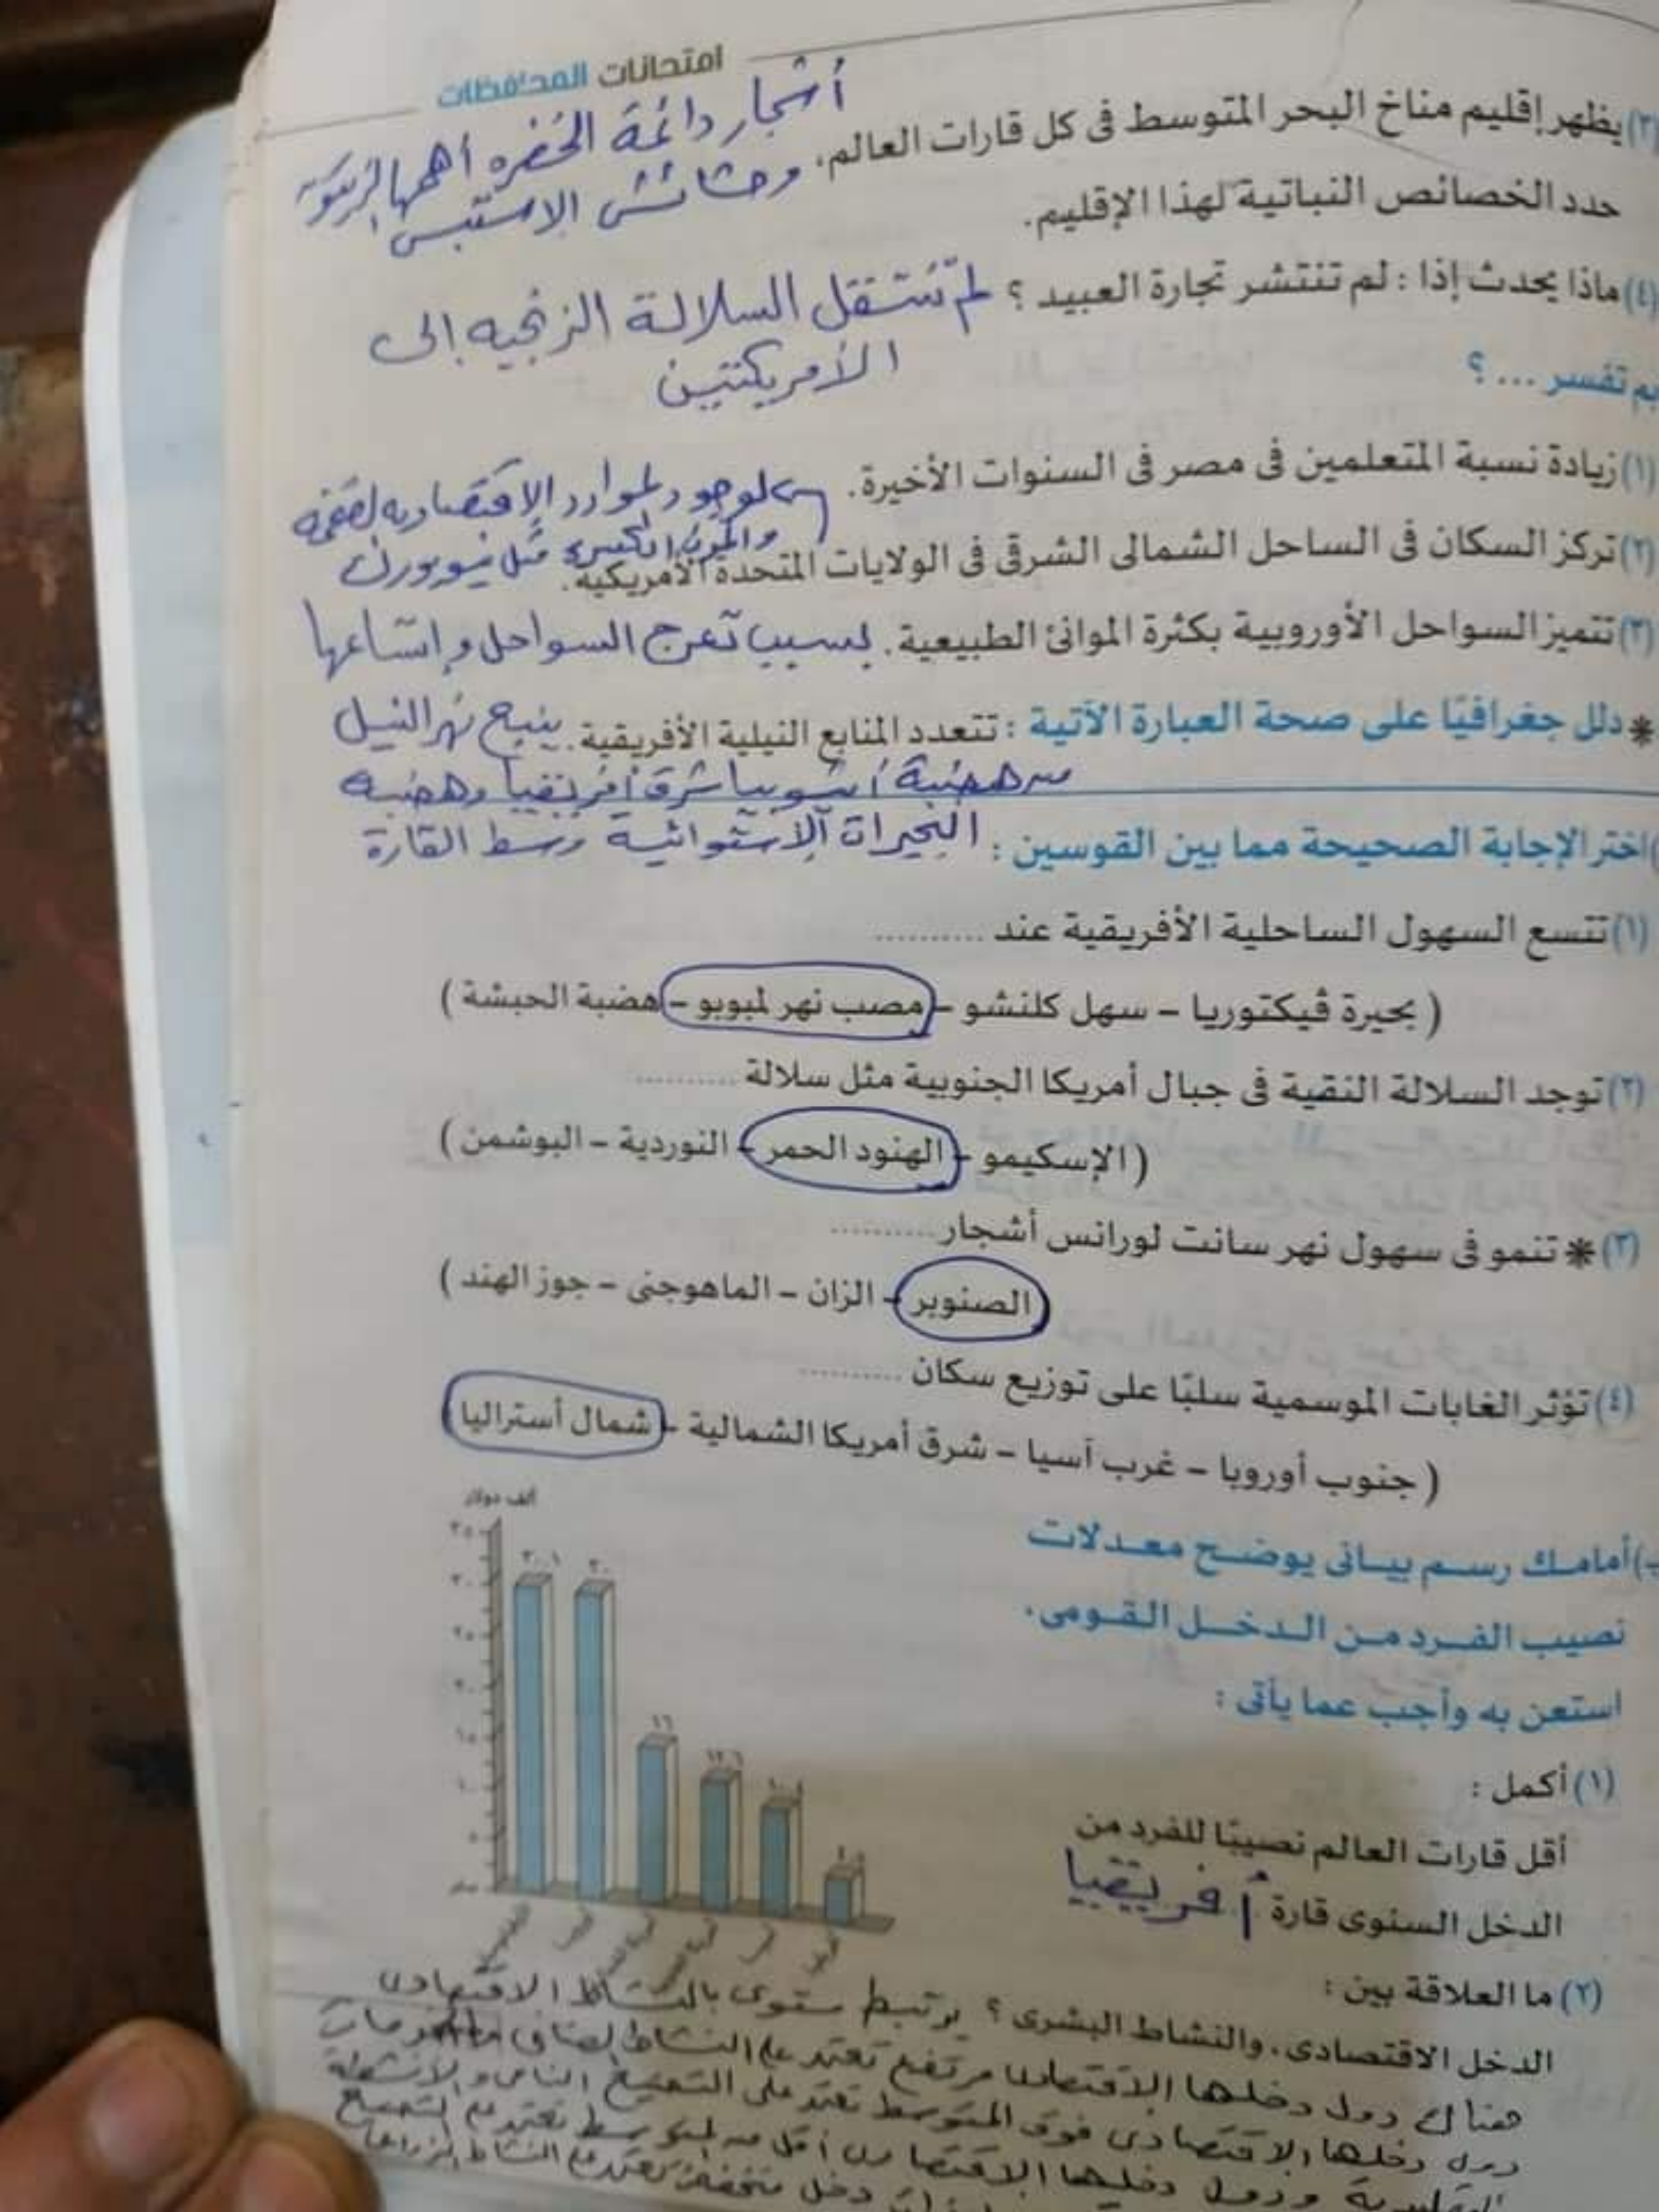 امتحانات المحافظات
(٣) يظهر إقليم مناخ البحر المتوسط فى كل قارات العالم،
أشجار دائمة الخضره أهمها الزيتون
حدد الخصائص النباتية لهذا الإقليم.
وحشائش الاستبس
(٤) ماذا يحدث إذا : لم تنتشر تجارة العبيد ؟ لم تنتقل السلالة الزنجيه إلى
الأمريكتين
بم تفسر ... ؟
(١) زيادة نسبة المتعلمين فى مصر فى السنوات الأخيرة.
لوجود لموارد الاقتصاديه لضخمه
والمدن الكبيره مثل نيويورك
(٢) تركز السكان فى الساحل الشمالى الشرقى فى الولايات المتحدة الأمريكية.
(٣) تتميز السواحل الأوروبية بكثرة الموانئ الطبيعية. بسبب تعرج السواحل وإتساعها
* دلل جغرافيًا على صحة العبارة الآتية : تتعدد المنابع النيلية الأفريقية. ينبع نهر النيل
من هضبة أثيوبيا شرق أفريقيا وهضبه
البحيرات الاستوائية وسط القارة
اختر الإجابة الصحيحة مما بين القوسين :
(١) تتسع السهول الساحلية الأفريقية عند ..........
( بحيرة ڤيكتوريا - سهل كلنشو - مصب نهر لمبوبو - هضبة الحبشة )
(٢) توجد السلالة النقية فى جبال أمريكا الجنوبية مثل سلالة ..........
( الإسكيمو - الهنود الحمر - النوردية - البوشمن )
(٣) * تنمو فى سهول نهر سانت لورانس أشجار ..........
( الصنوبر - الزان - الماهوجنى - جوز الهند )
(٤) تؤثر الغابات الموسمية سلبًا على توزيع سكان ..........
( جنوب أوروبا - غرب آسيا - شرق أمريكا الشمالية - شمال أستراليا )
ب) أمامك رسم بيانى يوضح معدلات
نصيب الفرد من الدخل القومى.
استعن به وأجب عما يأتى :
ألف دولار
٣٥
٣٠
٢٥
٢٠
١٥
١٠
٥
صفر
٣٠.١
٣٠
١٦
١٢.٦
(١) أكمل :
أقل قارات العالم نصيبًا للفرد من
الدخل السنوى قارة أفريقيا
(٢) ما العلاقة بين :
الدخل الاقتصادى، والنشاط البشرى ؟ يرتبط مستوى بالنشاط الاقتصادى
هناك دول دخلها الاقتصادى مرتفع تعتمد على النشاط لصناعى
دول دخلها الاقتصادى فوق المتوسط تعتمد على التصنيع الناس والأنشطة
ودول دخلها الاقتصادى أقل من لمتوسط تعتمد على التصنيع
دخل منخفض تعتمد على النشاط الزراعى